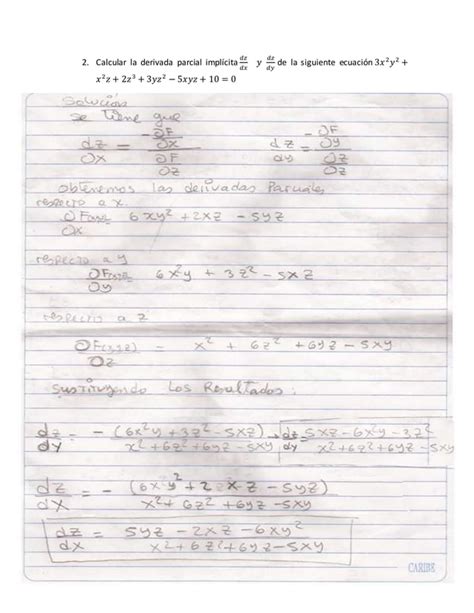 2. Calcular la derivada parcial implícita dz/dx y dz/dy de la siguiente ecuación 3x²y² +
x²z + 2z³ + 3yz² − 5xyz + 10 = 0
Solución
se tiene que
dz/∂x = -∂F/∂x / ∂F/∂z   dz/dy = -∂F/∂y / ∂z/∂z
obtenemos las derivadas Parciales
respecto a x.
∂F(xyz)/∂x = 6xy² + 2xz - 5yz
respecto a y
∂F(xyz)/∂y = 6x²y + 3z² - 5xz
respecto a z
∂F(xyz)/∂z = x² + 6z² + 6yz - 5xy
Sustituyendo Los Resultados:
dz/dy = - (6x²y + 3z² - 5xz) / x² + 6z² + 6yz - 5xy → dz/dy = 5xz - 6x²y - 3z² / x² + 6z² + 6yz - 5xy
dz/dx = - (6xy² + 2xz - 5yz) / x² + 6z² + 6yz - 5xy
dz/dx = 5yz - 2xz - 6xy² / x² + 6z² + 6yz - 5xy
CARIBE